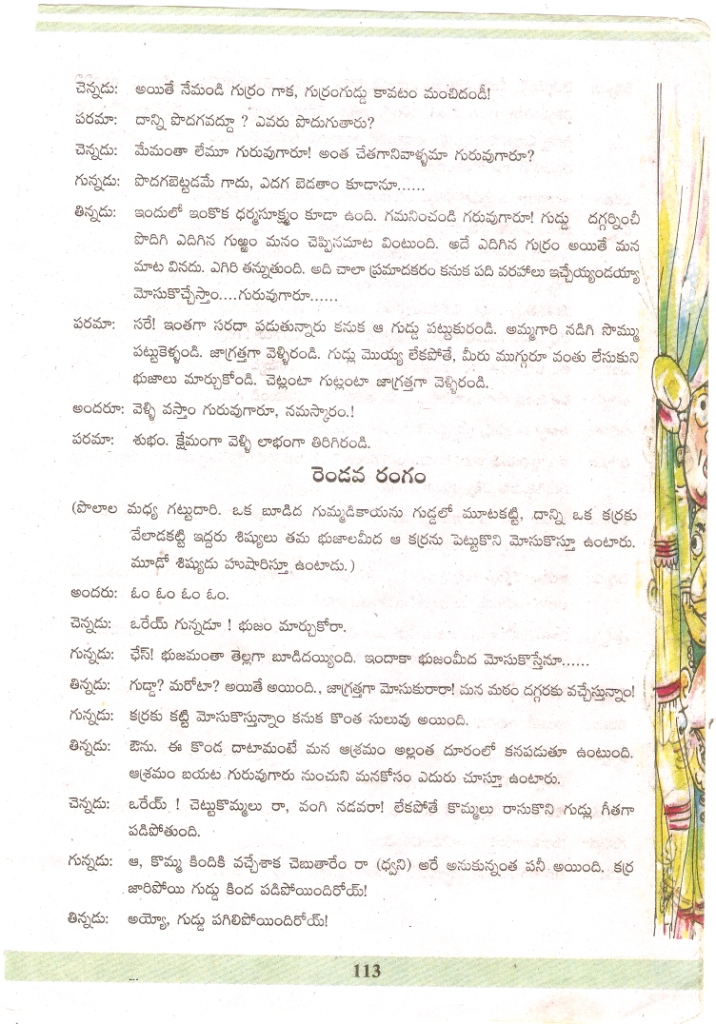 చెన్నడు: అయితే నేమండి గుర్రం గాక, గుర్రంగుడ్డు కావటం మంచిదండీ!
పరమా: దాన్ని పొదగవద్దూ ? ఎవరు పొదుగుతారు?
చెన్నడు: మేమంతా లేమూ గురువుగారూ! అంత చేతగానివాళ్ళమా గురువుగారూ?
గున్నడు: పొదగబెట్టడమే గాదు, ఎదగ బెడతాం కూడానూ......
తిన్నడు: ఇందులో ఇంకొక ధర్మసూక్ష్మం కూడా ఉంది. గమనించండి గరువుగారూ! గుడ్డు దగ్గర్నించీ
పొదిగి ఎదిగిన గుఱ్ఱం మనం చెప్పినమాట వింటుంది. అదే ఎదిగిన గుర్రం అయితే మన
మాట వినదు. ఎగిరి తన్నుతుంది. అది చాలా ప్రమాదకరం కనుక పది వరహాలు ఇచ్చేయ్యండయ్యా
మోసుకొచ్చేస్తాం....గురువుగారూ......
పరమా: సరే! ఇంతగా సరదా పడుతున్నారు కనుక ఆ గుడ్డు పట్టుకురండి. అమ్మగారి నడిగి సొమ్ము
పట్టుకెళ్ళండి. జాగ్రత్తగా వెళ్ళిరండి. గుడ్డు మొయ్య లేకపోతే, మీరు ముగ్గురూ వంతు లేసుకుని
భుజాలు మార్చుకోండి. చెట్లంటా గుట్లంటా జాగ్రత్తగా వెళ్ళిరండి.
అందరూ: వెళ్ళి వస్తాం గురువుగారూ, నమస్కారం.!
పరమా: శుభం. క్షేమంగా వెళ్ళి లాభంగా తిరిగిరండి.
రెండవ రంగం
(పొలాల మధ్య గట్టుదారి. ఒక బూడిద గుమ్మడికాయను గుడ్డలో మూటకట్టి, దాన్ని ఒక కర్రకు
వేలాడకట్టి ఇద్దరు శిష్యులు తమ భుజాలమీద ఆ కర్రను పెట్టుకొని మోసుకొస్తూ ఉంటారు.
మూడో శిష్యుడు హుషారిస్తూ ఉంటాడు.)
అందరు: ఓం ఓం ఓం ఓం.
చెన్నడు: ఒరేయ్ గున్నడూ ! భుజం మార్చుకోరా.
గున్నడు: ఛేస్! భుజమంతా తెల్లగా బూడిదయ్యింది. ఇందాకా భుజంమీద మోసుకొస్తేనూ......
తిన్నడు: గుడ్డా? మరోటా? అయితే అయింది., జాగ్రత్తగా మోసుకురారా! మన మఠం దగ్గరకు వచ్చేస్తున్నాం!
గున్నడు: కర్రకు కట్టి మోసుకొస్తున్నాం కనుక కొంత సులువు అయింది.
తిన్నడు: ఔను. ఈ కొండ దాటామంటే మన ఆశ్రమం అల్లంత దూరంలో కనపడుతూ ఉంటుంది.
ఆశ్రమం బయట గురువుగారు నుంచుని మనకోసం ఎదురు చూస్తూ ఉంటారు.
చెన్నడు: ఒరేయ్ ! చెట్టుకొమ్మలు రా, వంగి నడవరా! లేకపోతే కొమ్మలు రాసుకొని గుడ్డు గీతగా
పడిపోతుంది.
గున్నడు: ఆ, కొమ్మ కిందికి వచ్చేశాక చెబుతారేం రా (ధ్వని) అరే అనుకున్నంత పనీ అయింది. కర్ర
జారిపోయి గుడ్డు కింద పడిపోయిందిరోయ్!
తిన్నడు: అయ్యో, గుడ్డు పగిలిపోయిందిరోయ్!
113